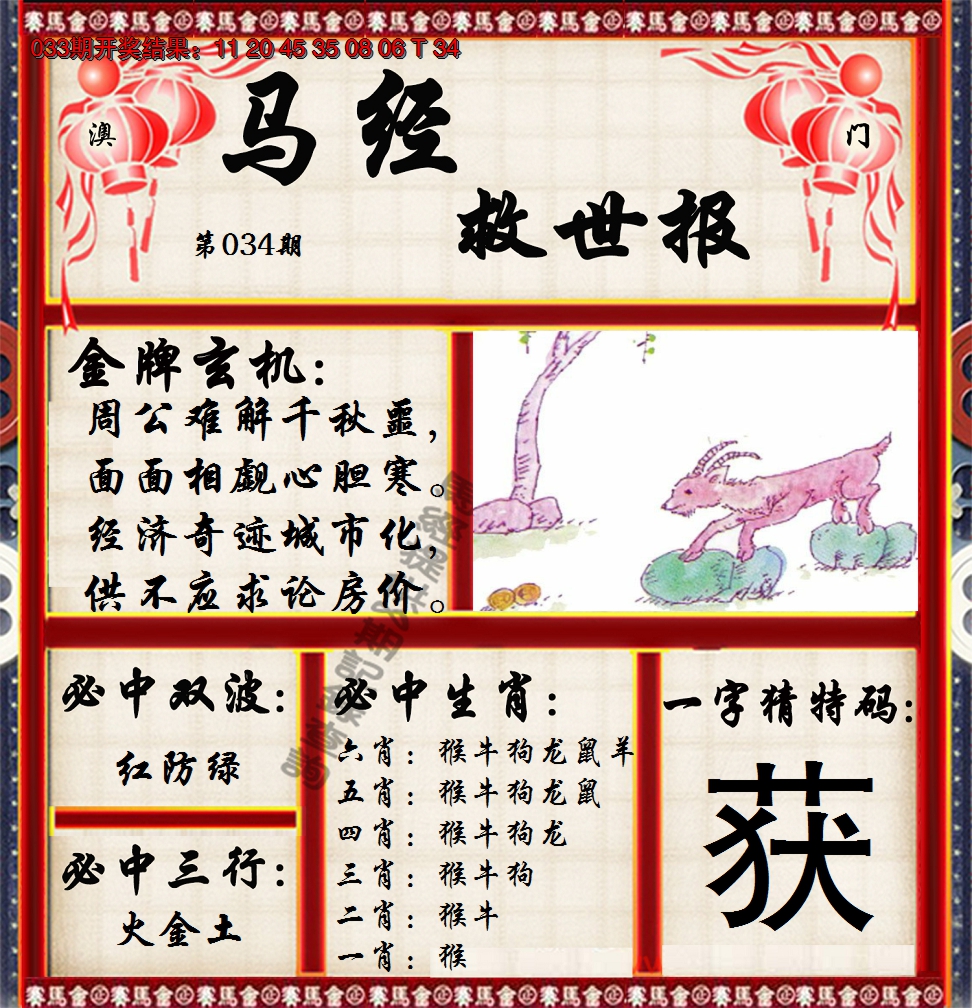 賽馬會
033期开奖结果：11 20 45 35 08 06 T 34
澳
门
马经
救世报
第034期
金牌玄机：
周公难解千秋噩，
面面相觑心胆寒。
经济奇迹城市化，
供不应求论房价。
必中双波：
红防绿
必中三行：
火金土
必中生肖：
六肖：猴牛狗龙鼠羊
五肖：猴牛狗龙鼠
四肖：猴牛狗龙
三肖：猴牛狗
二肖：猴牛
一肖：猴
一字猜特码：
获